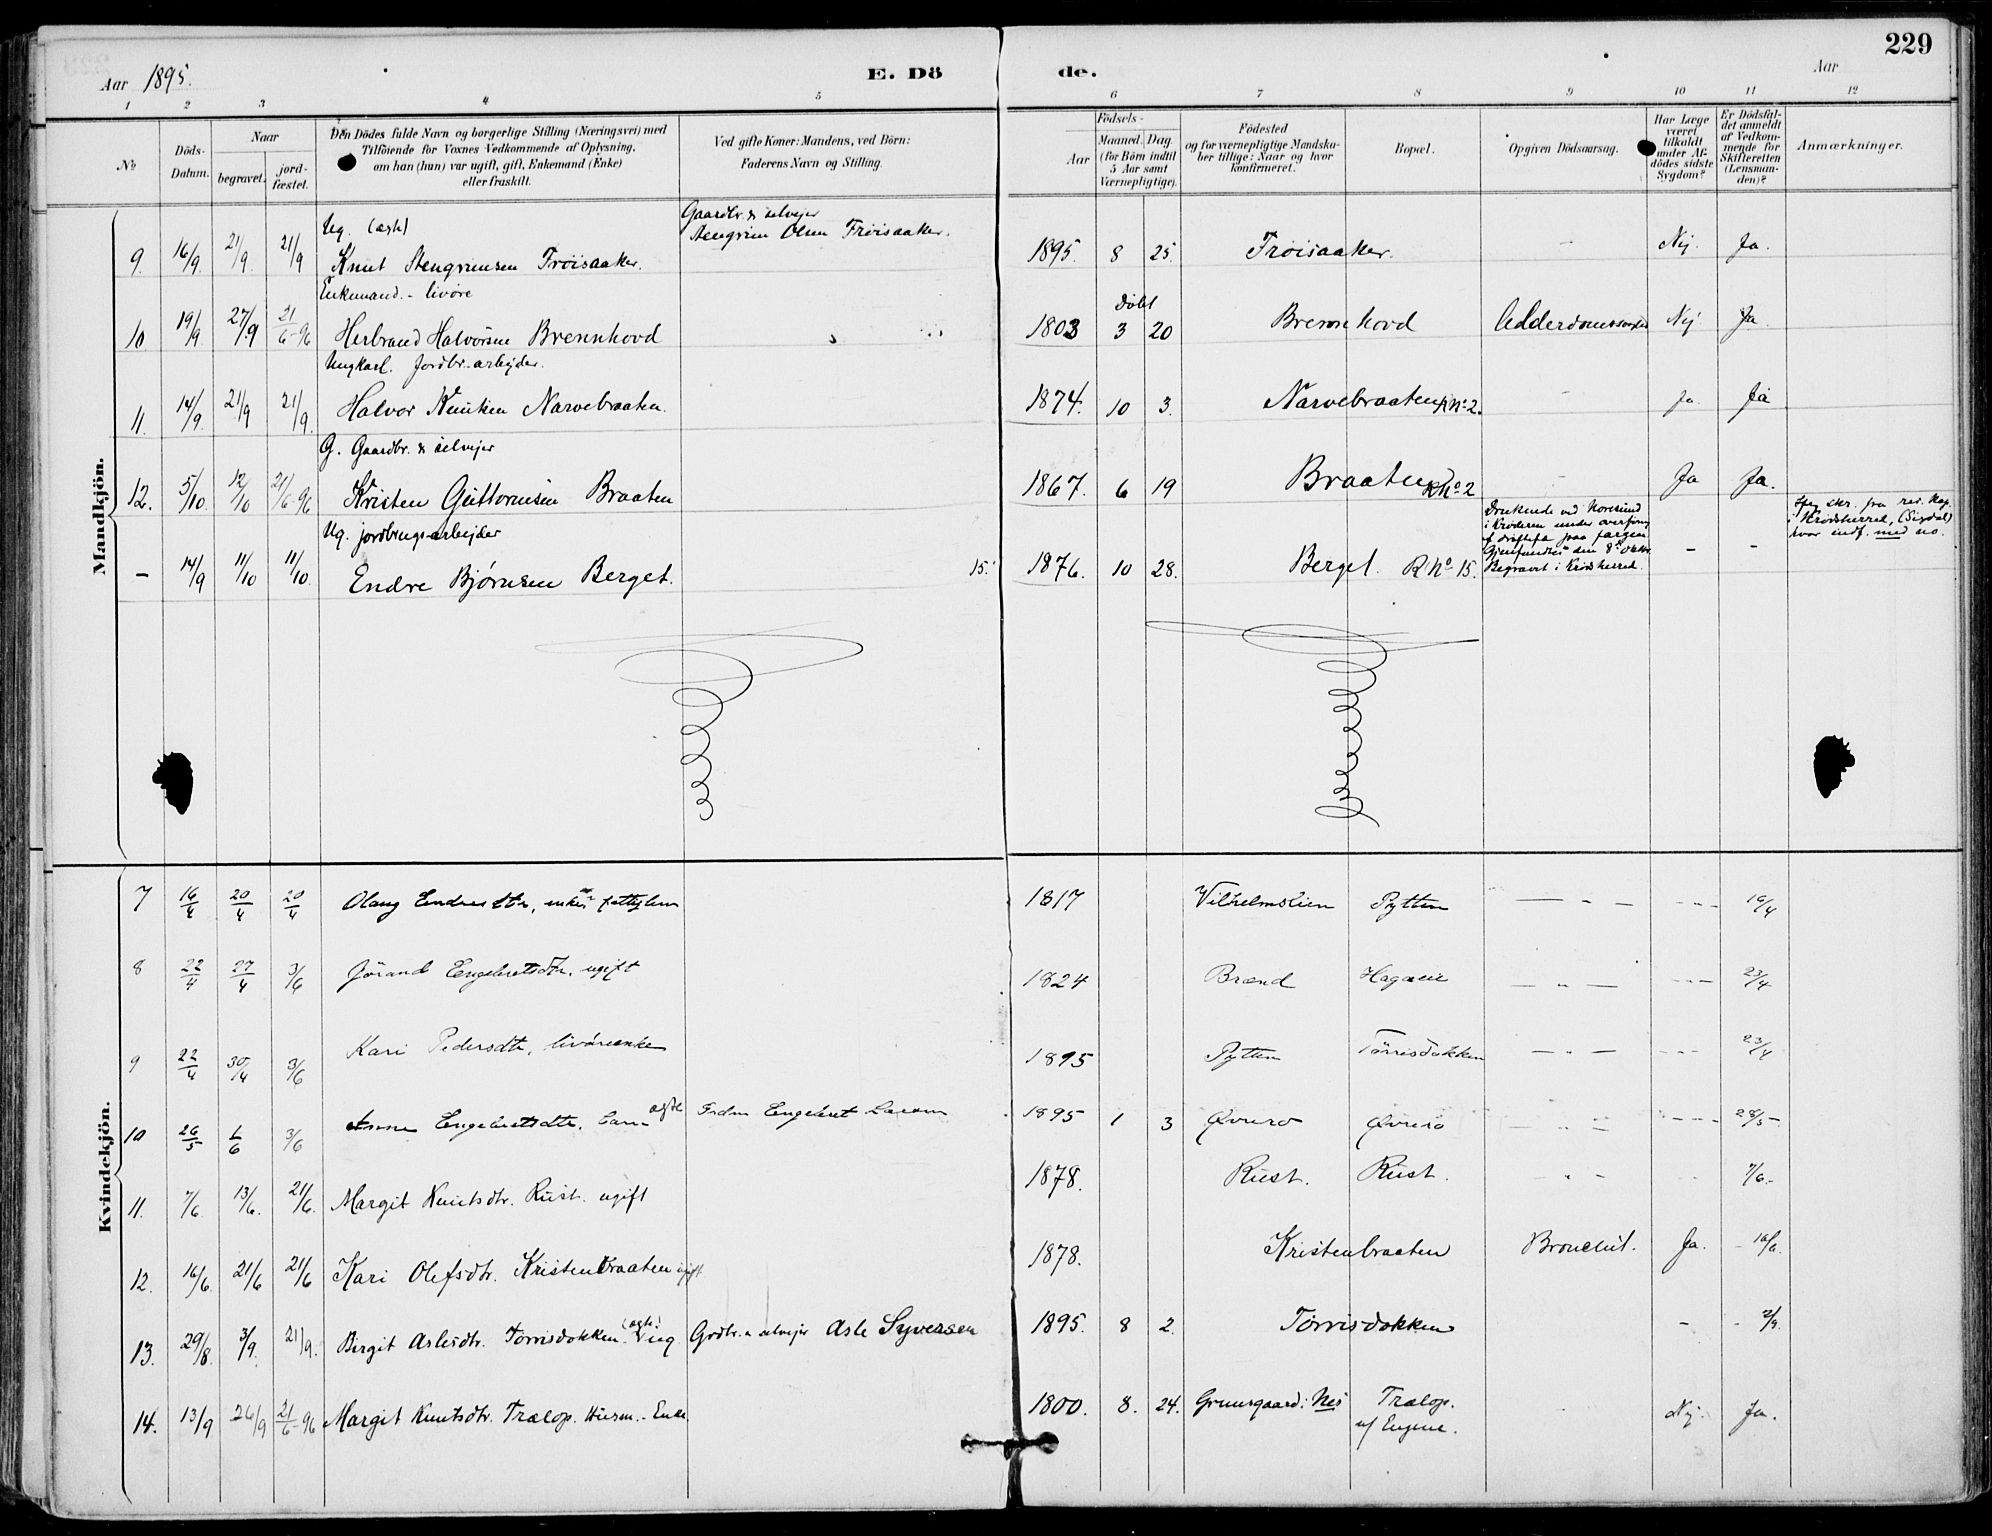 229
Aar 1895.
E. Dö de.
Aar
1 2 3 4 5 6 7 8 9 10 11 12
No
Döds-Datum.
Naar
begravet.
jord-fæstet.
Den Dödes fulde Navn og borgerlige Stilling (Næringsvei) med
Tilföiende for Voxnes Vedkommende af Oplysning,
om han (hun) var ugift, gift, Enkemand (Enke)
eller fraskilt.
Ved gifte Koner: Mandens, ved Börn:
Faderens Navn og Stilling.
Födsels-
Aar
Maaned. Dag.
(for Börn indtil
5 Aar samt
Værnepligtige).
Födested
og for værnepligtige Mandska-
ber tillige: Naar og hvor
konfirmeret.
Bopæl.
Opgiven Dödsaarsag.
Har Læge
været
tilkaldt
under Af-
dödes sidste
Sygdom?
Er Dödsfal-
det anmeldt
af Vedkom-
mende for
Skifteretten
(Lensman-
den)?
Anmærkninger.
Mandkjön.
Ug. (ægte) Gaardbr. & selvejer
9. 16/9 21/9 21/9 Knut Stengrimsen Trøisaaker. Stengrim Olsen Trøisaaker. 1895. 8 25. Trøisaaker. Nej. Ja.
Enkemand. - livøre Døbt
10 19/9 27/9 21/6 96 Herbrand Halvorsen Brennhovd 1803 3 20 Brennhovd Nej Ja
Ungkarl. Jordbr. arbejder.
11. 14/9 21/9 21/9. Halvor Knutsen Narvebraaten. 1874. 10 3. Narvebraaten R No 2. Ja. Ja
G. Gaardbr. & selvejer
12. 5/10 12/10 21/6 96 Kristen Guttormsen Braaten 1867. 6 19 Braaten R No 2 Ja Ja.
Ug. jordbrugsarbejder
- 14/9 11/10 11/10. Endre Bjørnsen Berget. 15. 1876. 10 28. Berget. R No 15. - -
Drukende ved Noresund
i Krøderen under
paa færgen
den 8de Oktbr.
Begravet i Krødsherred.
skr. fra
i Krødsherred, (Sigdal)
hvor indf. med no.
Kvindekjön.
7 16/4 20/4 20/4 Olaug Endresdtr, enke 1817 Vilhelmslien Pytten - " - - - - 16/4
8 22/4 27/4 3/6 Jörand Engebretsdtr. ugift 1824 Brænd - " - - - - 23/4
9 22/4 30/4 3/6 Kari Pedersdtr, livöreenke 1895 Pytten Törrisdokken - " - - - - 23/4
10 26/5 6/6 3/6 Anne Engebretsdtr. barn ægte Fader Engebret Larsen 1895 1 3 Øvrero Øvrero 28/5
11. 7/6. 13/6. 21/6. Margit Knutsdtr. Rust. ugift 1878. Rust. Rust. - " - 7/6.
12. 16/6. 21/6 21/6 Kari Olefsdtr. Kristenbraaten ugift 1878. Kristenbraaten Bronchit. Ja. 16/6.
13. 29/8. 3/9. 21/9. Birgit Aslesdtr. Torrisdokken (ægte) Ug Grdbr. & selvejer Asle Syversen 1895. 8 2. Torrisdokken - - 2/9.
14. 13/9 26/9 21/6 96 Margit Knutsdtr. Trælop. Husm. - Enke. 1800. 8. 24. Nes Trælop. Nej. Ja.